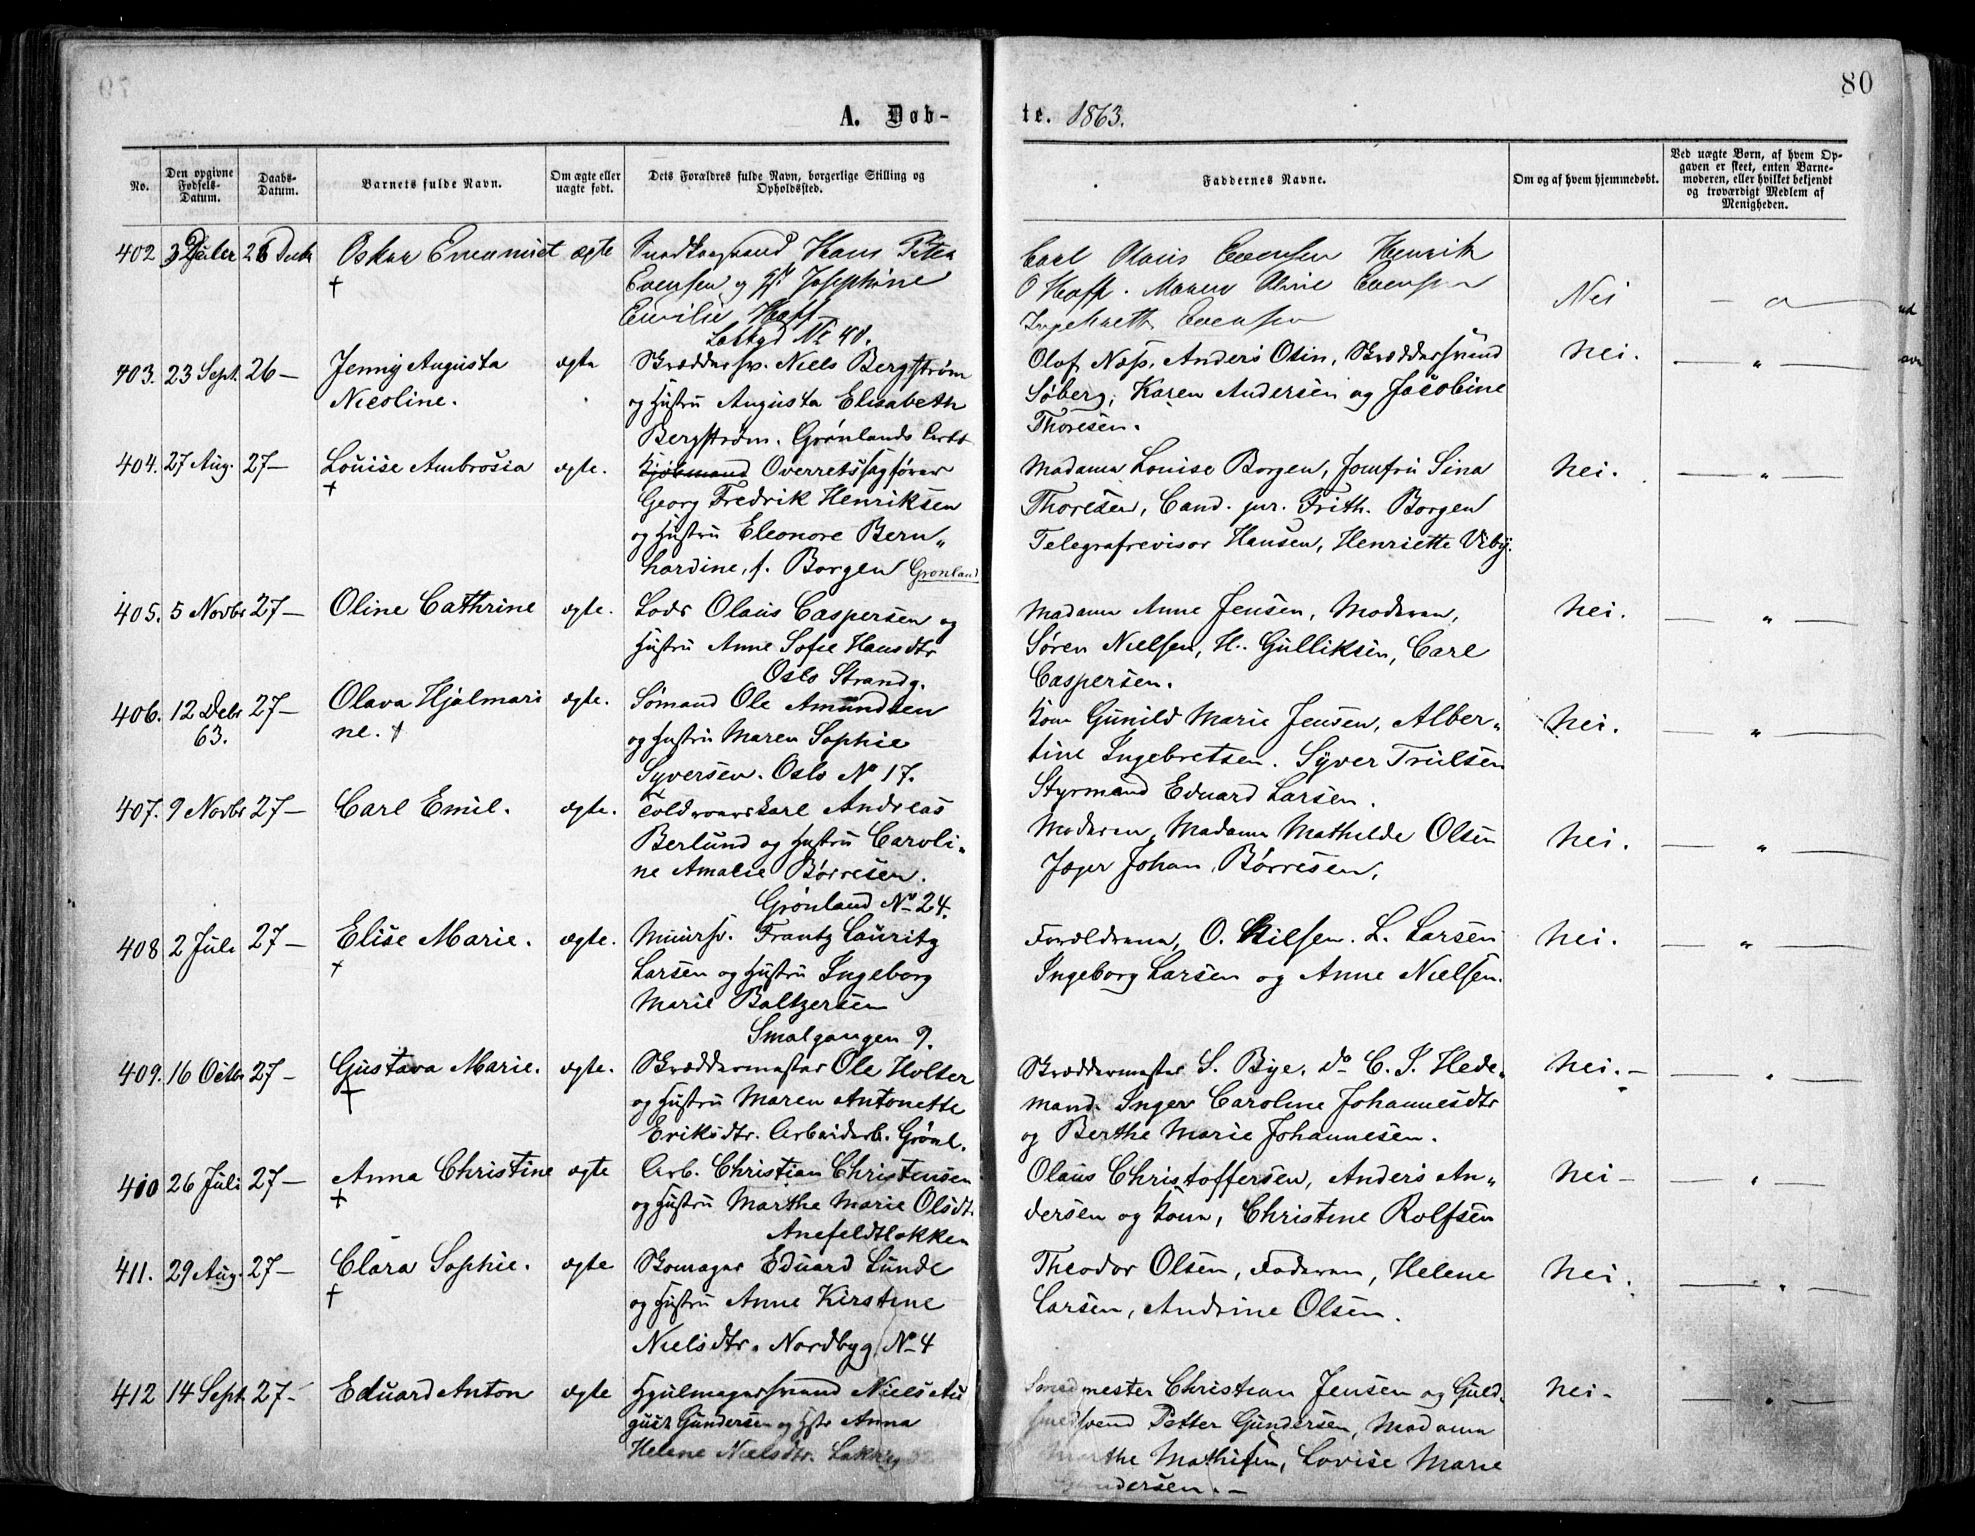 80
A. Døb-
te. 1863.
No.
Den opgivne
Fødsels-
Datum.
Daabs-
Datum.
Barnets fulde Navn.
Om ægte eller
uægte født.
Dets Forældres fulde Navn, borgerlige Stilling og
Opholdssted.
Faddernes Navne.
Om og af hvem hjemmedøbt.
Ved uægte Børn, af hvem Op-
gaven er skeet, enten Barne-
moderen, eller hvilket bekjendt
og troværdigt Medlem af
Menigheden.
402 26 Oskar ægte Hans Peter
Evensen og Josephine
Emilie Hoff
No 40.
Carl Olaus Evensen Henrik
O Hoff. Maren Oline Evensen
Evensen
Nei
403. 23 Sept. 26 — Jenny Augusta ægte Skræddersv. Niels Bergstrøm
Nicoline. og Hustru Augusta Elisabeth
Bergstrøm. Grønlands
Olaf Næss, Anders Osin, Skræddersvend
Søberg, Karen Andersen og Jacobine
Thoresen.
Nei. — " —
404. 27 Aug. 27 — Louise Ambrosia ægte. Kjøbmand Overretssagfører
+ Georg Fredrik Henriksen
og Hustru Eleonore Bern„
hardine, f. Borgen Grønland
Madame Louise Borgen, Jomfru Sina
Thoresen, Cand. jur. Frith. Borgen
Telegrafrevisor Hansen, Henriette Viby.
Nei. — " —
405. 5 Novbr 27 — Oline Cathrine ægte. Lods Olaus Caspersen og
Hustru Anne Sofie Hansdtr
Oslo Strandg.
Madame Anne Jensen, Moderen,
Søren Nielsen, H. Gulliksen, Carl
Caspersen.
Nei. — " —
406. 12 Debr 27 — Olava Hjalmari ægte. Sømand Ole Amundsen
63. ne. + og Hustru Maren Sophie
Syversen. Oslo No 17.
Kone Gunild Marie Jensen, Alber„
tine Ingebretsen. Syver Trulsen
Styrmand Eduard Larsen.
Nei. — " —
407. 9 Novbr 27 — Carl Emil. ægte. Andreas
Berlund og Hustru Caroli„
ne Amalie Børresen.
Grønland No 24.
Moderen, Madame Mathilde Olsen
Jæger Johan Børresen.
Nei. — " —
408 2 Juli 27 — Elise Marie. ægte. Muursv. Frantz Lauritz
+ Larsen og Hustru Ingeborg
Marie Baltzersen
Smalgangen 9.
Forældrene, O. Nilsen. L. Larsen
Ingeborg Larsen og Anne Nielsen.
Nei. — " —
409. 16 Octbr 27 — Gustava Marie. ægte. Skræddermester Ole Holter
+ og Hustru Maren Antonette
Eriksdtr. Arbeiderb. Grønl.
Skræddermester S. Bye. Do C. S. Hede„
mand. Inger Caroline Johannesdtr
og Berthe Marie Johannesen.
Nei. — — " —
410 26 Juli 27 — Anna Christine ægte Arb. Christian Christensen
+ og Hustru Marthe Marie Olsdt.
Anefeldtløkken
Olaus Christoffersen, Anders An„
dersen og Kone, Christine Rolfsen
Nei — — " —
411. 29 Aug. 27 — Clara Sophie. ægte Skomager Eduard Lunde
+ og Hustru Anne Kirstine
Nielsdtr. Nordbyg. No 4
Theodor Olsen, Faderen, Helene
Larsen, Andrine Olsen.
Nei. — " —
412 14 Sept. 27 — Eduard Anton ægte Hjulmagersvend Niels Au
gust Gundersen og Hstr Anna
Helene Nielsdtr.
Smedmester Christian Jensen og Guld„
smedsvend Petter Gundersen, Madame
Marthe Mathisen, Lovise Marie
Gundersen. —
Nei — — " —